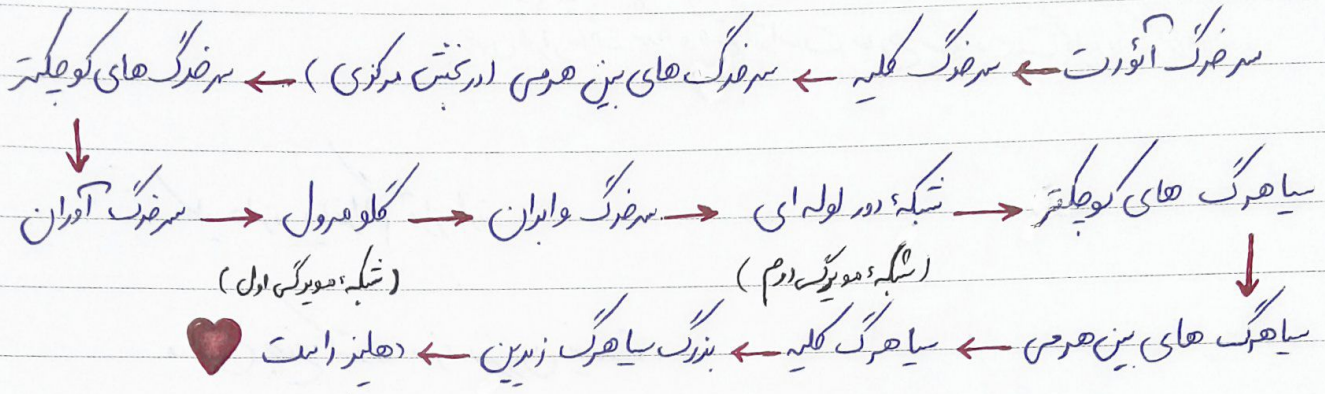 سرخرگ آئورت ← سرخرگ کلیه ← سرخرگ های بین هرمی (در بخش مرکزی) ← سرخرگ های کوچکتر
↓
سرخرگ آوران → گلومرول → سرخرگ وابران → شبکهٔ دور لوله ای → سیاهرگ های کوچکتر
(شبکهٔ مویرگی اول) (شبکهٔ مویرگی دوم) ↓
سیاهرگ های بین هرمی ← سیاهرگ کلیه ← بزرگ سیاهرگ زیرین ← دهلیز راست